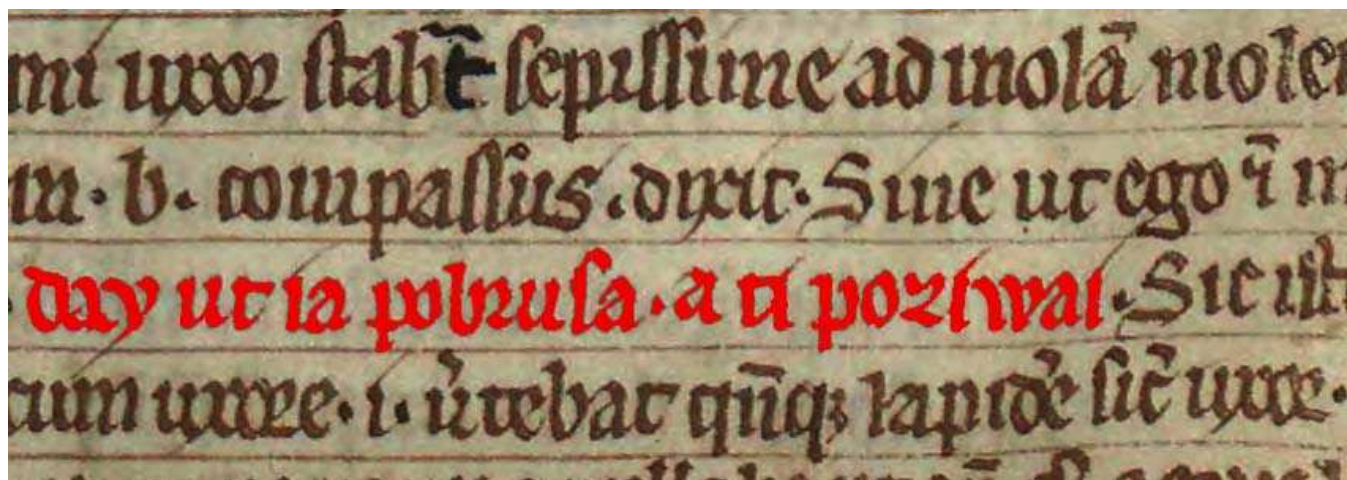 mi uxor stabat̄ sepissime ad molā moler
m · b · compassus · dixit · Sine ut ego ī m
day ut ia pobrusa · a ti poziwai · Sic ist
cum uxore · i · ůtebat qn̄qꝫ lapidē sic̄ uxore ·